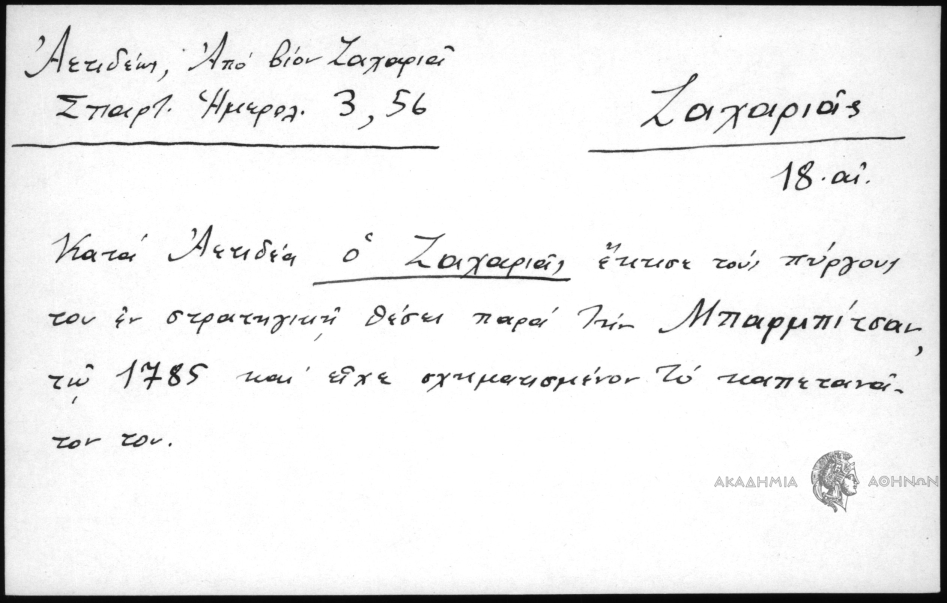 Ἀετιδέως, Ἀπό βίον Ζαχαριᾶ
Σπαρτ. Ἡμερολ. 3, 56
Ζαχαριᾶς
18. αἰ.
Κατά Ἀετιδέα ὁ Ζαχαριᾶς ἔκτισε τούς πύργους
του ἐν στρατηγικῇ θέσει παρά τήν Μπαρμπίτσαν,
τῷ 1785 καί εἶχε σχηματισμένον τό καπετανᾶ-
τον του.
ΑΚΑΔΗΜΙΑ ΑΘΗΝΩΝ